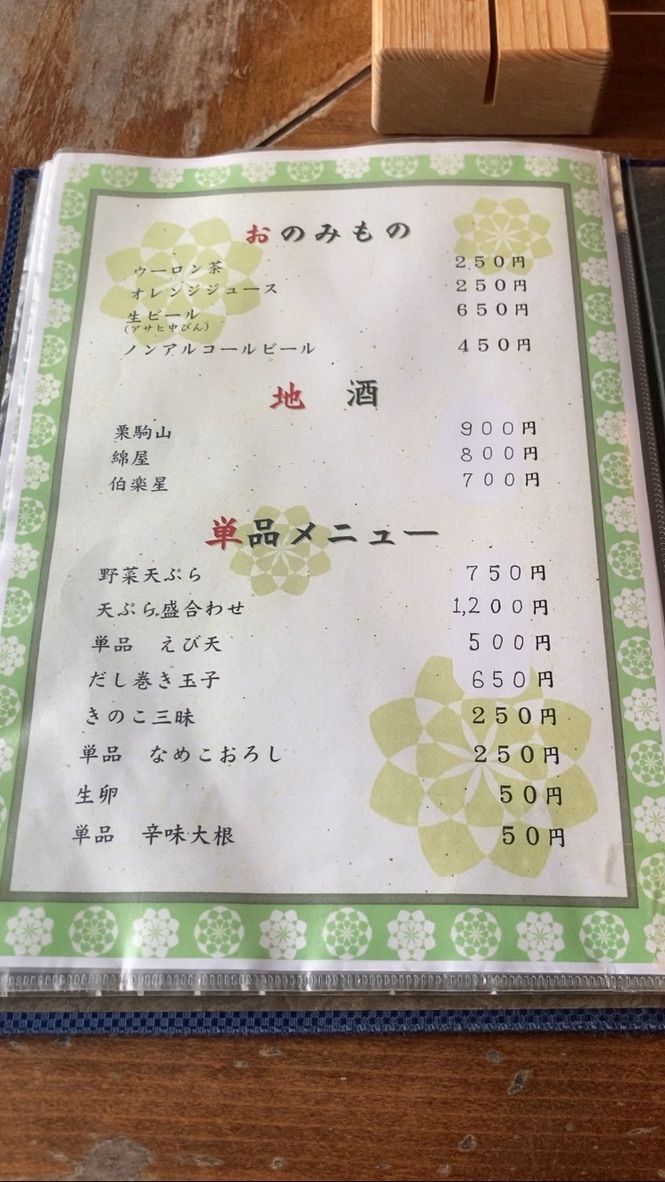 おのみもの
ウーロン茶 250円
オレンジジュース 250円
生ビール 650円
(アサヒ中びん)
ノンアルコールビール 450円
地 酒
栗駒山 900円
綿屋 800円
伯楽星 700円
単品メニュー
野菜天ぷら 750円
天ぷら盛合わせ 1,200円
単品 えび天 500円
だし巻き玉子 650円
きのこ三昧 250円
単品 なめこおろし 250円
生卵 50円
単品 辛味大根 50円